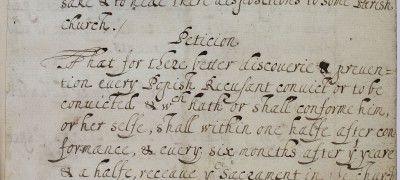 sake & to heare there dispositions to some Parish
church./
Peticion
That for there better discoverie & preven=
tion every Popish Recusant convict or to be
convicted & wch hath or shall conforme him,
or her selfe, shall within one halfe after con
formance, & every six moneths after yt yeare
& a halfe, receaue ye Sacrament in church